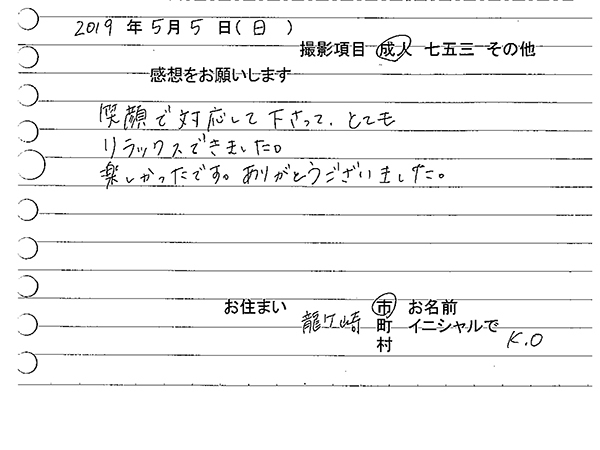 2019 年 5 月 5 日 ( 日 )
撮影項目 成人 七五三 その他
感想をお願いします
笑顔で対応して下さって、とても
リラックスできました。
楽しかったです。ありがとうございました。
お住まい 龍ケ崎 市 お名前
町 イニシャルで K.O
村